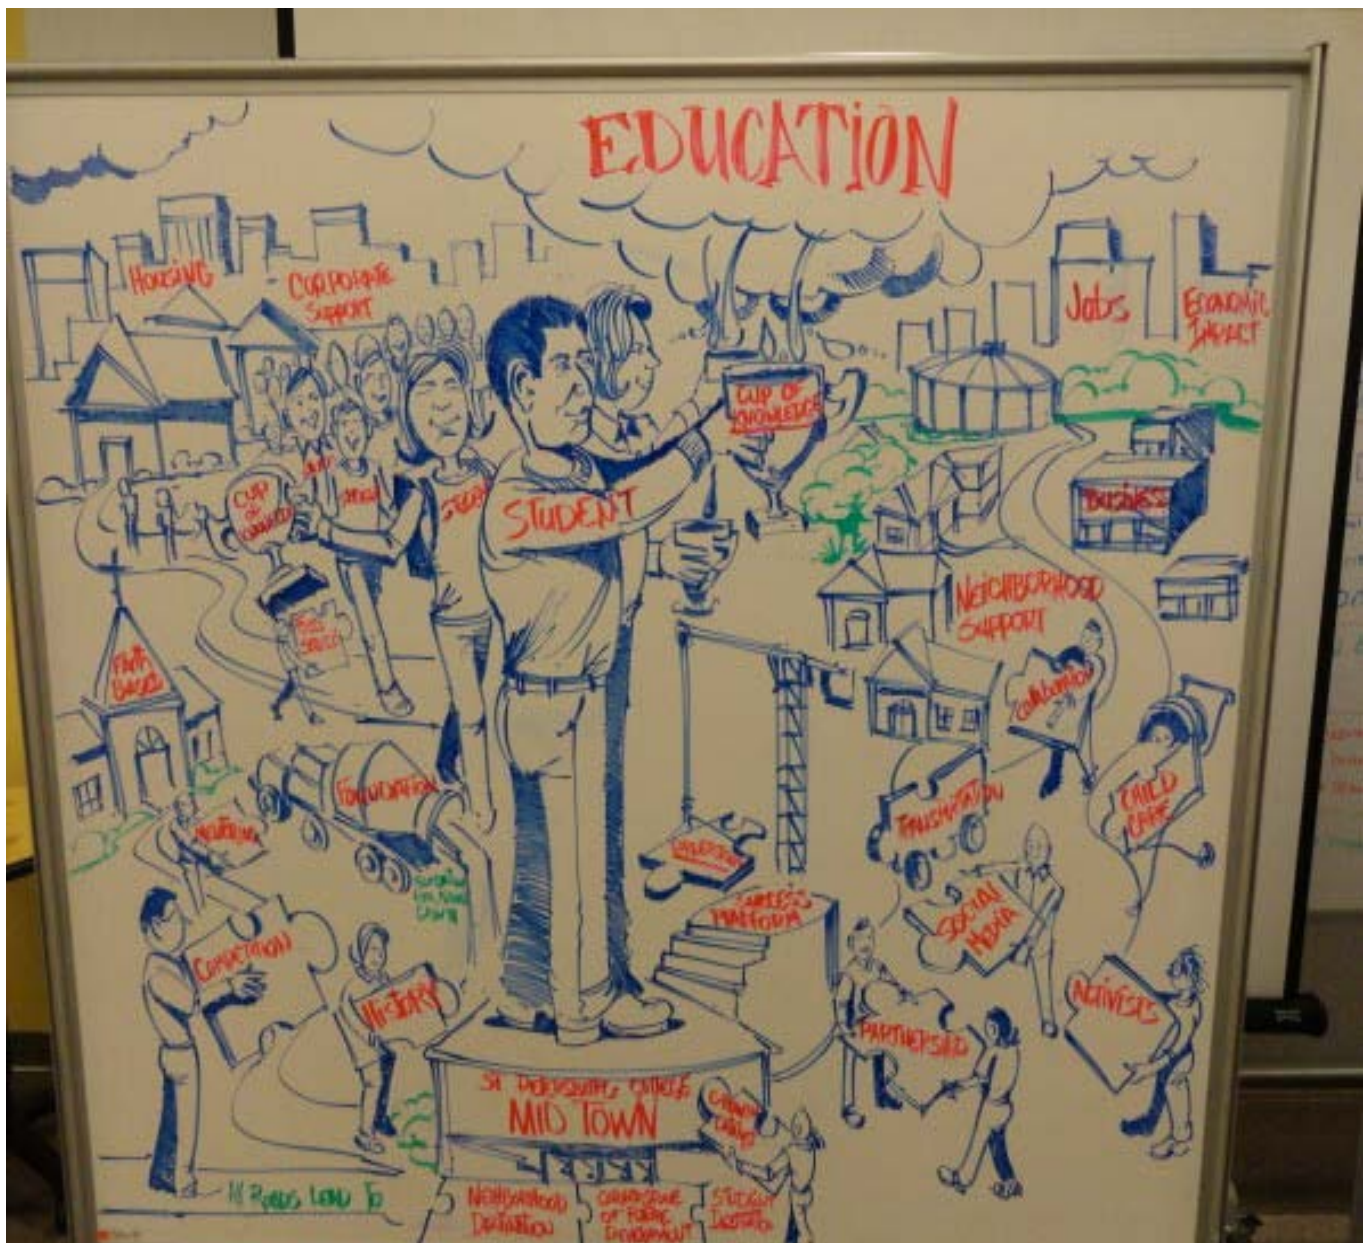 EDUCATION
HOUSING
CORPORATE
SUPPORT
Jobs
ECONOMIC
IMPACT
CUP OF
KNOWLEDGE
CUP
OF
STUDENT
BUSINESS
NEIGHBORHOOD
SUPPORT
FAITH
BASED
COLLABORATION
FOUNDATION
TRANSPORTATION
CHILD
CARE
MENTORING
SUCCESS
PLATFORM
SOCIAL
MEDIA
COMPETITION
HISTORY
PARTNERSHIP
ACTIVISTS
ST PETERSBURG COLLEGE
MID TOWN
All ROADS LEAD TO
NEIGHBORHOOD
DESTINATION
CORNERSTONE
OF FUTURE
DEVELOPMENT
STUDENT